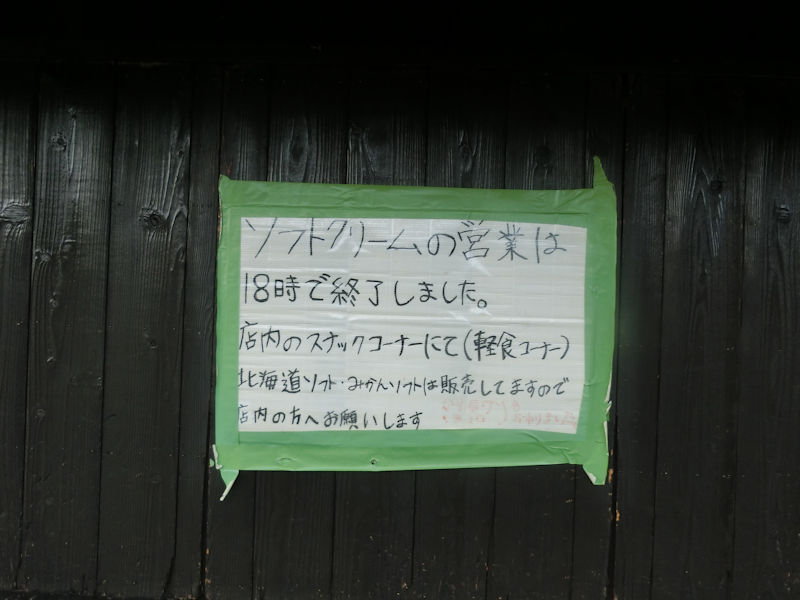 ソフトクリームの営業は
18時で終了しました。
店内のスナックコーナーにて(軽食コーナー)
北海道ソフト・みかんソフトは販売してますので
店内の方へお願いします